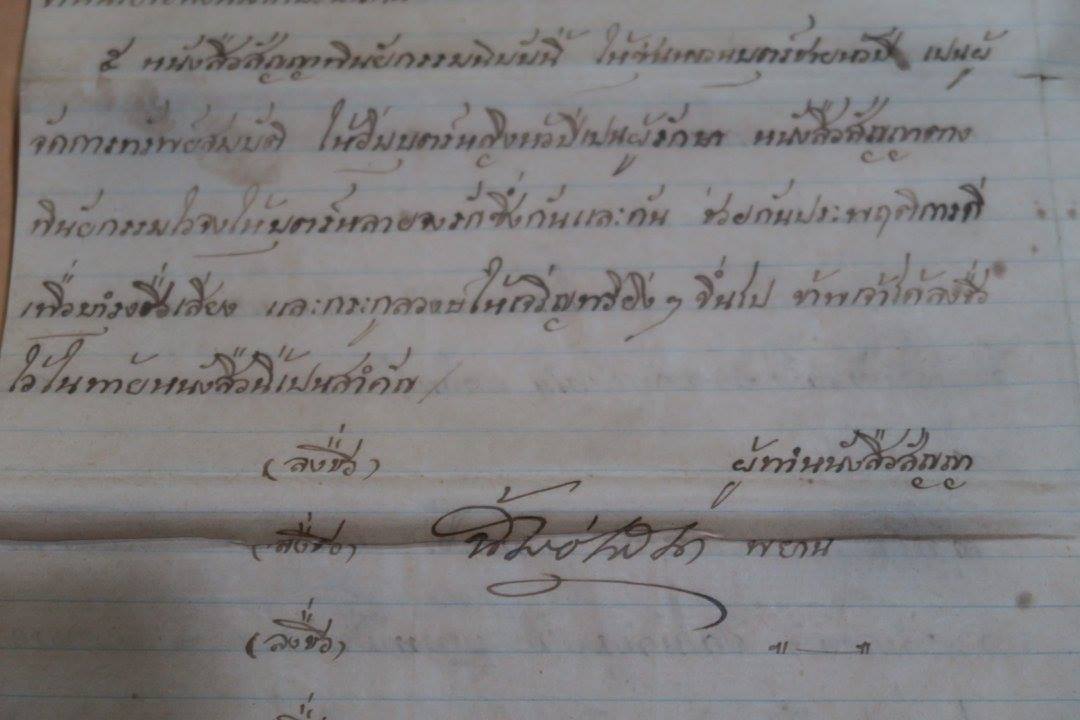 ๕ หนังสือสัญญาพินัยกรรมนิบับนี้ ให้ บุตร์ชายหัวปี เปนผู้
จัดการทรัพย์สมบัติ ให้ บุตร์หญิงหัวปีเปนผู้รักษา หนังสือสัญญาทาง
พินัยกรรมไว้จงให้บุตร์หลายจงรักซึ่งกันและกัน ช่วยกันประพฤติการดี
เพื่อบำรงชื่อเสียง และกระกูลวงษ์ให้เจริญทรียิ่ง ๆ ขึ้นไป ข้าพเจ้าได้ลงชื่อ
ไว้ในท้ายหนังสือนี้เปนสำคัญ
(ลงชื่อ) ผู้ทำหนังสือสัญญา
(ลงชื่อ) พยาน
(ลงชื่อ) " — "